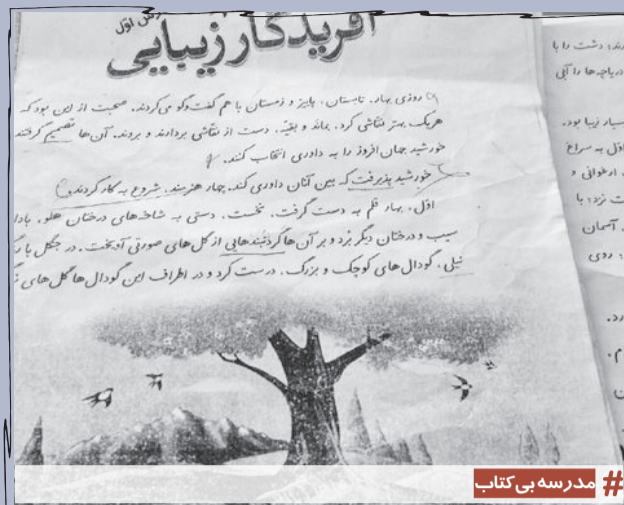 درس اوّل
آفریدگار زیبایی
روزی بهار، تابستان، پاییز و زمستان با هم گفت‌وگو می‌کردند. صحبت از این بود که
هریک بهتر نقاشی کرد، بماند و بقیّه، دست از نقاشی بردارند و بروند. آن‌ها تصمیم گرفتند
خورشید جهان افروز را به داوری انتخاب کنند.
خورشید پذیرفت که بین آنان داوری کند. چهار هنرمند، شروع به کار کردند.
اوّل، بهار قلم به دست گرفت. نخست، دستی به شاخه‌های درختان هلو، بادا
سیب و درختان دیگر بُرد و بر آن‌ها گردنبندهایی از گل‌های صورتی آویخت. در جنگل با
نیلی، گودال‌های کوچک و بزرگ، درست کرد و در اطراف این گودال‌ها گل‌های
دشت را با
دریاچه‌ها را آبی
بسیار زیبا بود.
اوّل به سراغ
ارغوانی و
زد؛ با
آسمان
روی
# مدرسه بی‌کتاب